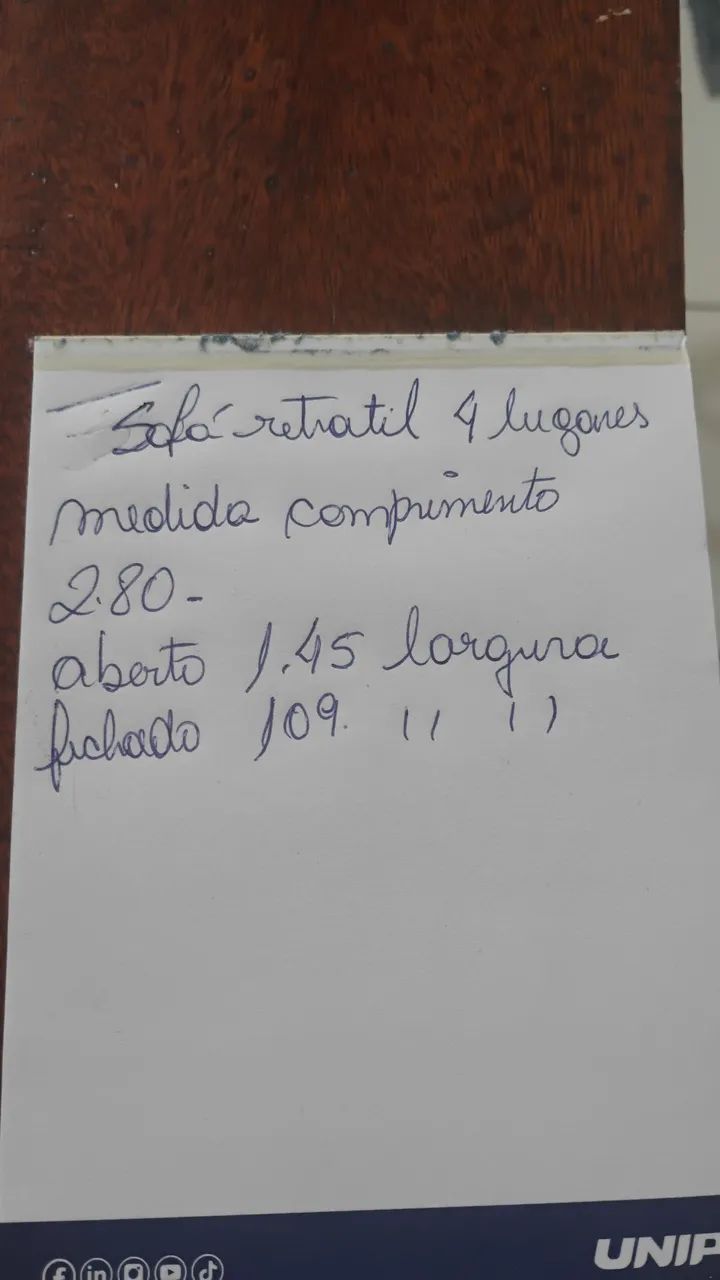 Sofá retratil 4 lugares
medida comprimento
2.80-
aberto 1.45 largura
fechado 109. " "
UNIP